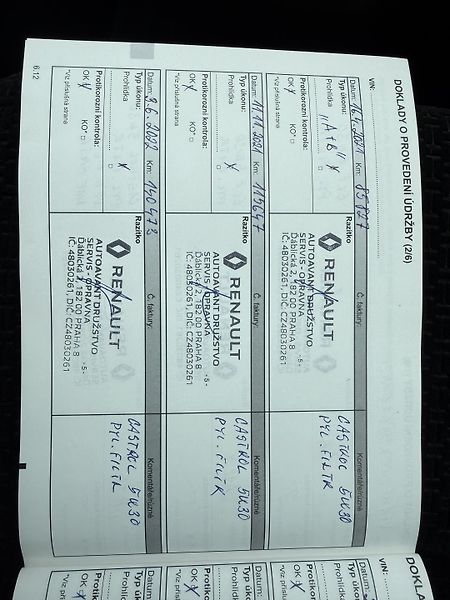 DOKLADY O PROVEDENÍ ÚDRŽBY (2/6)
VIN:
Datum: 16.4.2021 Km: 85827 Č. faktury: Komentáře/různé
Typ úkonu: "A+B" X
Prohlídka
Protikorozní kontrola:
OK X KO* □
*Viz příslušná strana
Razítko
RENAULT
AUTOAVANT DRUŽSTVO
SERVIS - OPRAVNA
Ďáblická 2, 182 00 PRAHA 8
IČ: 48030261, DIČ: CZ48030261
-5-
CASTROL 5W30
PYL. FILTR
Datum: 11.11.2021 Km: 115647 Č. faktury: Komentáře/různé
Typ úkonu:
Prohlídka X
Protikorozní kontrola:
OK X KO* □
*Viz příslušná strana
Razítko
RENAULT
AUTOAVANT DRUŽSTVO
SERVIS - OPRAVNA
Ďáblická 2, 182 00 PRAHA 8
IČ: 48030261, DIČ: CZ48030261
-5-
CASTROL 5W30
PYL. FILTR
Datum: 3.6.2022 Km: 140473 Č. faktury: Komentáře/různé
Typ úkonu:
Prohlídka X
Protikorozní kontrola:
OK X KO* □
*Viz příslušná strana
Razítko
RENAULT
AUTOAVANT DRUŽSTVO
SERVIS - OPRAVNA
Ďáblická 2, 182 00 PRAHA 8
IČ: 48030261, DIČ: CZ48030261
-5-
CASTROL 5W30
PYL. FILTR
6.12
DOKLADY
VIN:
Datum:
Typ úkonu:
Prohlídka
Protikoro
OK X
*Viz příslu
Datum:
Typ úk
Prohlíd
Protiko
OK X
*Viz př
Datum
Typ ú
Prohl
Protik
OK X
*Viz